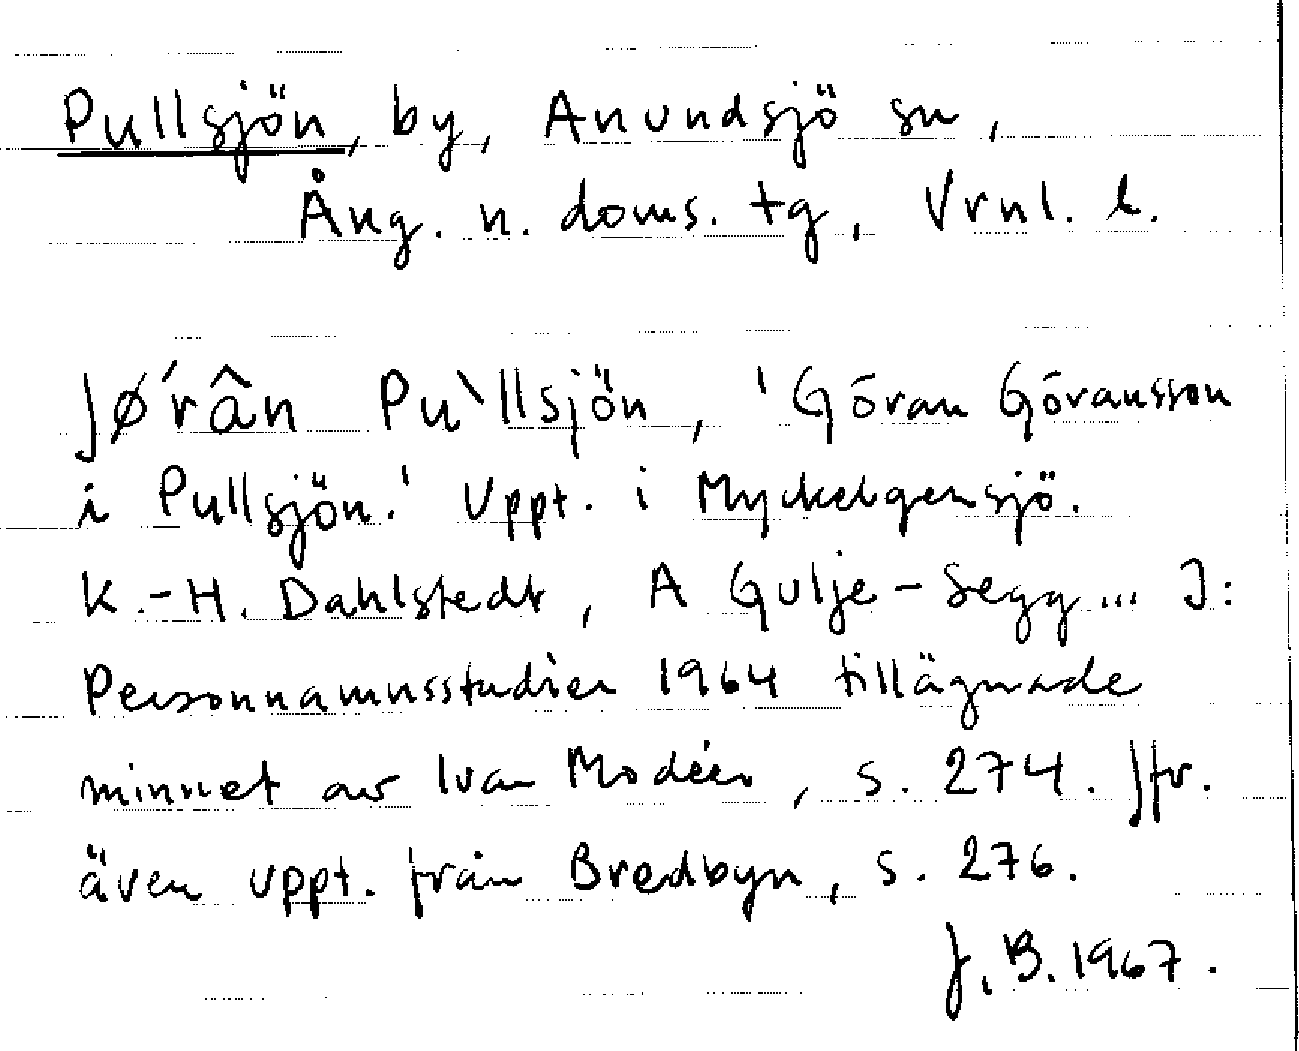 Pullsjön, by, Anundsjö sn,
Ång. n. doms. tg, Vrnl. l.
Jø´rân Pu`llsjön, 'Göran Göransson
i Pullsjön.' Uppt. i Myckelgensjö.
K.-H. Dahlstedt, A Gulje-Segg... I:
Personnamnsstudier 1964 tillägnade
minnet av Ivar Modéer, s. 274. Jfr.
även uppt. från Bredbyn, s. 276.
J.B. 1967.